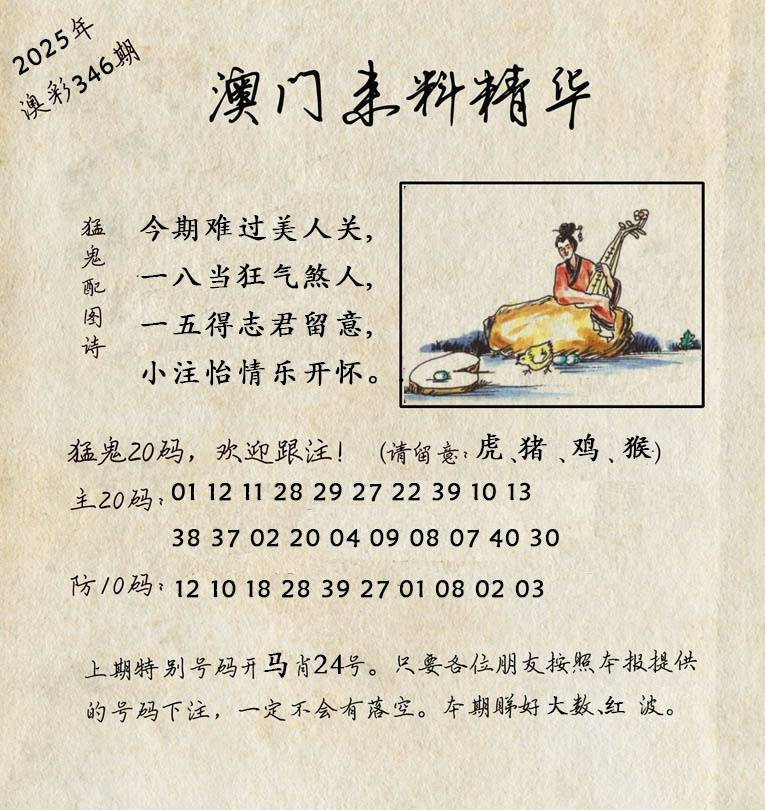 2025年
澳彩346期
澳门来料精华
猛鬼配图诗
今期难过美人关，
一八当狂气煞人，
一五得志君留意，
小注怡情乐开怀。
猛鬼20码，欢迎跟注！（请留意：虎、猪、鸡、猴）
主20码：01 12 11 28 29 27 22 39 10 13
38 37 02 20 04 09 08 07 40 30
防10码：12 10 18 28 39 27 01 08 02 03
上期特别号码开马肖24号。只要各位朋友按照本报提供
的号码下注，一定不会有落空。本期睇好大数、红 波。